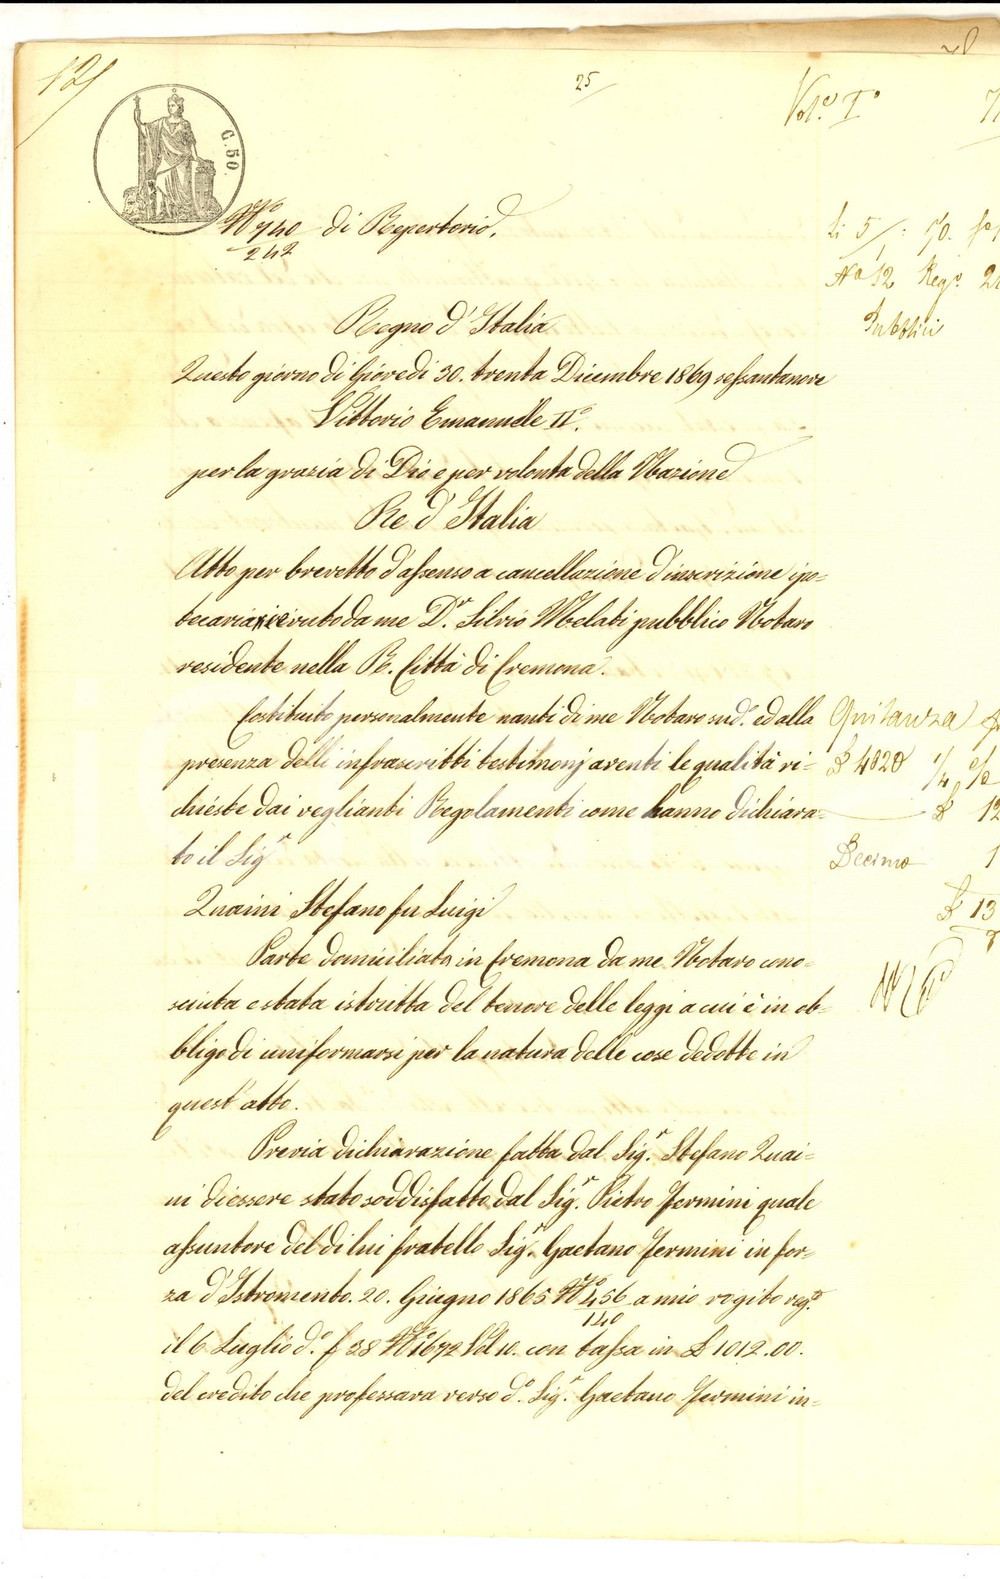 121
25
Vol.e I°
C. 50.
N° 740 di Repertorio.
242
Li 5
N° 12 Reg°.
Pubblici
Regno d'Italia
Questo giorno di Giovedi 30. trenta Dicembre 1869 sessantanove
Vittorio Emanuelle II°.
per la grazia di Dio e per volonta della Nazione
Re d'Italia
Atto per brevetto d'assenso a cancellazione d'inscrizione ipo=
tecaria ricevuto da me D.r Silvio Melati pubblico Notaro
residente nella R. Città di Cremona.
Costituito personalmente nanti di me Notaro sud.° ed alla
presenza delli infrascritti testimonj aventi le qualità ri=
chieste dai veglianti Regolamenti come hanno dichiara=
to il Sig.r
Quaini Stefano fu Luigi
Parte domiciliata in Cremona da me Notaro cono=
sciuta e stata istrutta del tenore delle leggi a cui è in ob=
bligo di uniformarsi per la natura delle cose dedotte in
quest'atto.
Previa dichiarazione fatta dal Sig.r Stefano Quai=
ni di essere stato soddisfatto dal Sig.r Pietro Jermini quale
assuntore del di lui fratello Sig.r Gaetano Jermini in for=
za d'Istromento 20. Giugno 1865 N° 456 a mio rogito reg.to
140
il 6 Luglio d.° f 28 N° 1672 Vol 10. con tassa in £ 1012.00.
del credito che professava verso d.° Sig.r Gaetano Jermini in=
Quitanza
£ 4820 1/4 %
£ 12
Decimo 1
£ 13